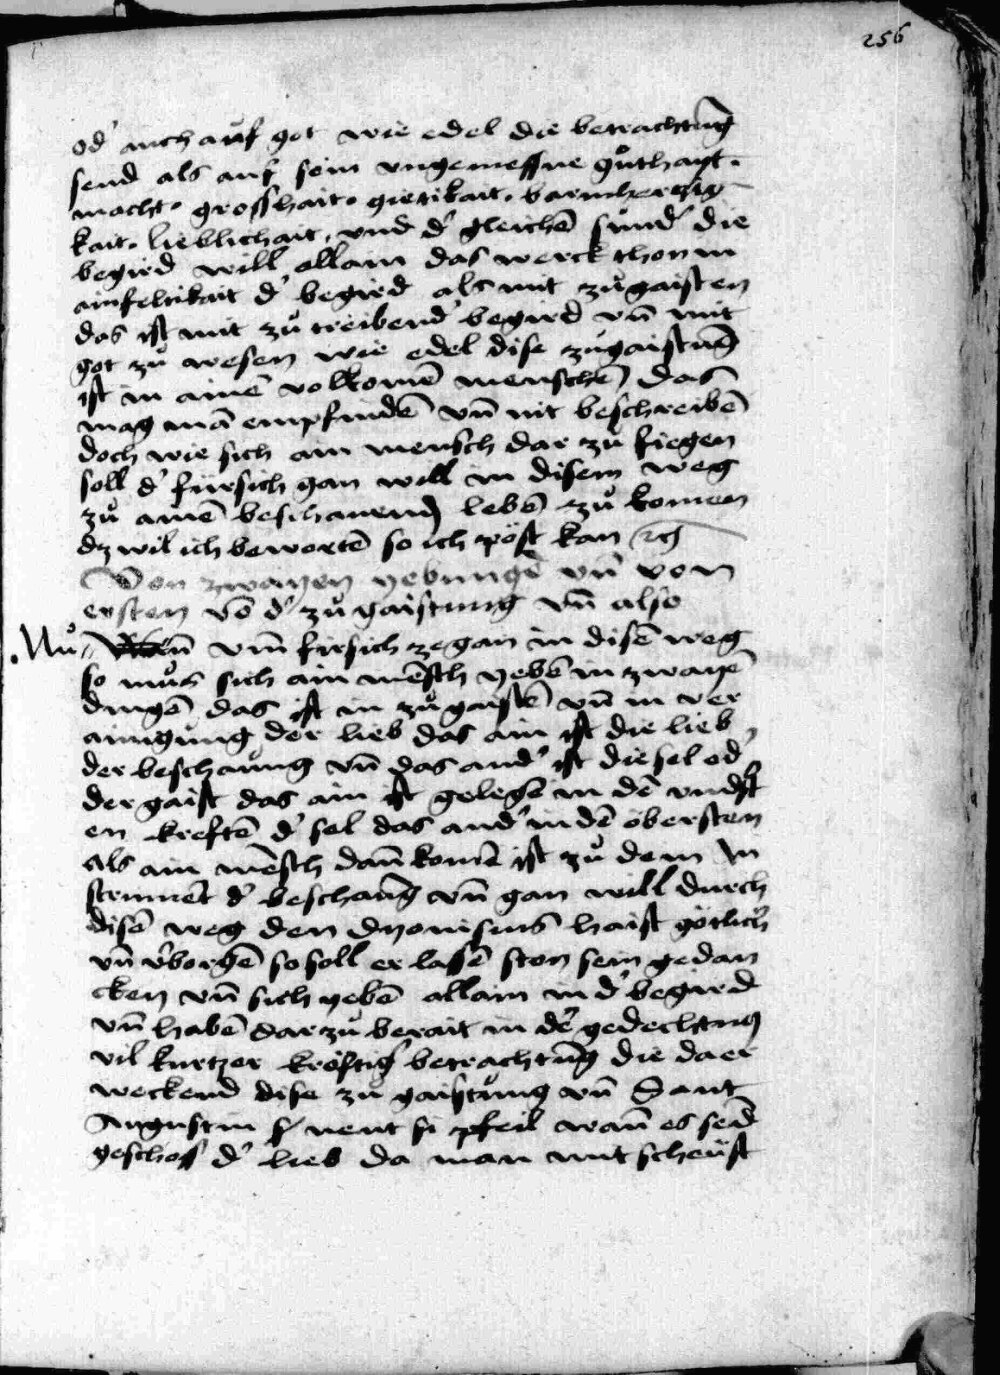 256
od' auch auf got wie edel die betrachtung
send als auf sein ungemessne guͦthayt.
macht. grosshait. gietikait. barmhertzig
kait. lieblichait. und d' gleichē sund' die
begird will allain das werck thon in
ainfeltikait d' begird als mit zuͦgaisten
das ist mit zuͦ treibend' begird vn̄ mit
got zuͦ wesen wie edel dise zuͦgaistūg
ist in ainē volkomē menschē das
mag mā empfindē vn̄ nit beschreibē
doch wie sich ain mensch dar zuͦ fiegen
soll d' fürsich gan will in disem weg
zuͦ ainē beschauend lebē zuͦ komen
dz wil ich bewortē so ich pöst kan
Von zwayen yebungē vn̄ von
ersten vō d' zuͦgaistung vn̄ also
Nuͦ vm̄ firsich ze gan in disē weg
so muͦs sich ain mēsch yebē in zwayē
dingē das ist in zuͦgaistē vn̄ in ver
ainigung der lieb das ain ist die lieb
der beschauͦng vn̄ das and' ist die sel od'
der gaist das ain ist gelegē in dē vnd'st
en kreftē d' sel das and' in dē öbersten
als ain mēsch dan̄ komē ist zuͦ dem in
strumēt d' beschaūg vn̄ gan will durch
disē weg den dyonisius haist götlich'
vn̄ v'borgē so soll er lassē ston sein gedan
cken vn̄ sich yebē allain in d' begird
vn̄ habē dar zuͦ berait in d' gedechtnus
vil kurtzer kreftig' betrachtūg die da er
weckend dise zuͦ gaistung vn̄ Sant
Augustin nent si pfeil wan̄ es send
geschoss d' lieb da man mit scheust